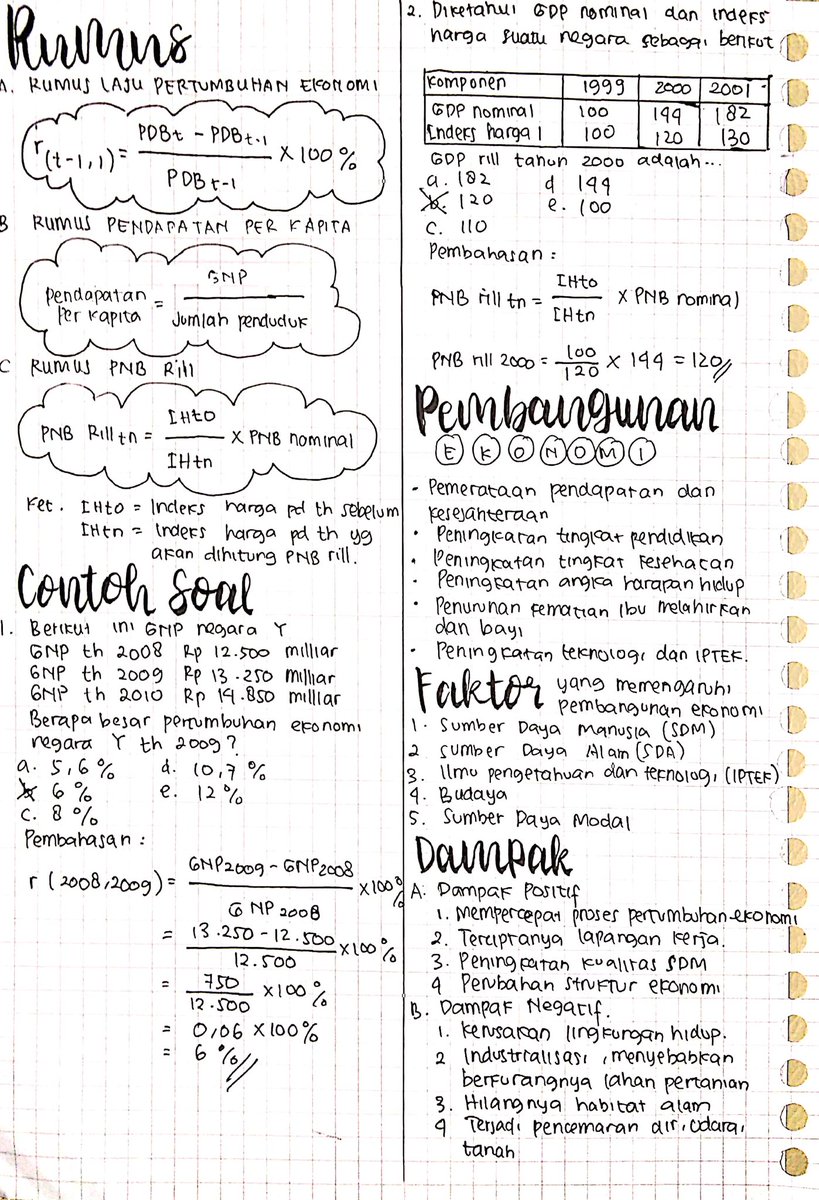 Rumus
A. RUMUS LAJU PERTUMBUHAN EKONOMI
r(t-1,1) = PDBt - PDBt-1 / PDBt-1 X 100%
B RUMUS PENDAPATAN PER KAPITA
Pendapatan Per Kapita = GNP / Jumlah penduduk
C RUMUS PNB Rill
PNB Rill tn = IHto / IHtn X PNB nominal
Ket. IHto = Indeks harga pd th sebelum
IHtn = Indeks harga pd th yg
akan dihitung PNB rill.
Contoh Soal
1. Berikut ini GNP negara Y
GNP th 2008 Rp 12.500 milliar
GNP th 2009 Rp 13.250 milliar
GNP th 2010 Rp 14.850 milliar
Berapa besar pertumbuhan ekonomi
negara Y th 2009?
a. 5,6% d. 10,7%
b. 6% e. 12%
c. 8%
Pembahasan :
r (2008,2009) = GNP2009 - GNP2008 / GNP 2008 X 100%
= 13.250 - 12.500 / 12.500 X 100%
= 750 / 12.500 X 100%
= 0,06 X 100%
= 6%//
2. Diketahui GDP nominal dan indeks
harga suatu negara sebagai berikut
Komponen 1999 2000 2001
GDP nominal 100 144 182
Indeks harga 1 100 120 130
GDP rill tahun 2000 adalah...
a. 182 d 144
b. 120 e. 100
c. 110
Pembahasan :
PNB rill tn = IHto / IHtn X PNB nominal
PNB rill 2000 = 100 / 120 X 144 = 120//
Pembangunan
EKONOMI
- Pemerataan pendapatan dan
kesejahteraan
• Peningkatan tingkat pendidikan
• Peningkatan tingkat kesehatan
• Peningkatan angka harapan hidup
• Penurunan kematian ibu melahirkan
dan bayi
• Peningkatan teknologi dan IPTEK.
Faktor yang memengaruhi
pembangunan ekonomi
1. Sumber Daya Manusia (SDM)
2 Sumber Daya Alam (SDA)
3. Ilmu pengetahuan dan teknologi (IPTEK)
4. Budaya
5. Sumber Daya Modal
Dampak
A. Dampak Positif
1. Mempercepat proses pertumbuhan ekonomi
2. Terciptanya lapangan kerja.
3. Peningkatan kualitas SDM
4 Perubahan struktur ekonomi
B. Dampak Negatif.
1. Kerusakan lingkungan hidup.
2 Industrialisasi, menyebabkan
berkurangnya lahan pertanian
3. Hilangnya habitat alam
4 Terjadi pencemaran air, udara,
tanah